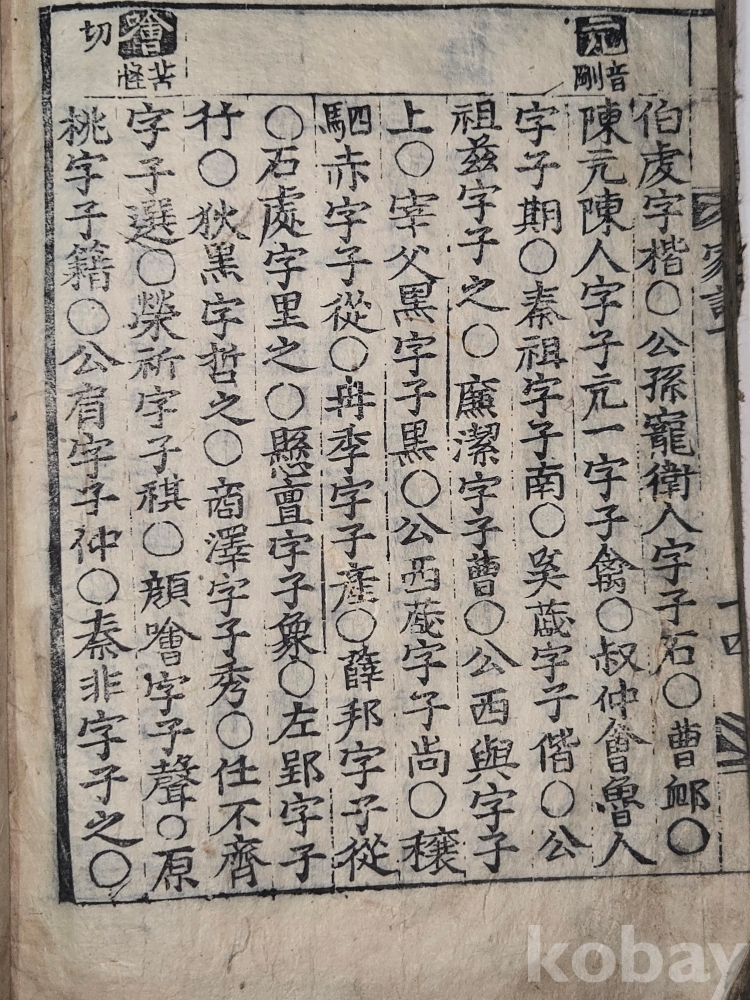 亢
音剛
噲
苦怪
切
伯虔字楷○公孫寵衛人字子石○曹卹○
陳亢陳人字子亢一字子禽○叔仲會魯人
字子期○秦祖字子南○奚蒧字子偕○公
祖茲字子之○廉潔字子曹○公西與字子
上○宰父黑字子黑○公西蒧字子尚○穰
駟赤字子從○冉季字子產○薛邦字子從
○石處字里之○懸亶字子象○左郢字子
行○狄黑字哲之○商澤字子秀○任不齊
字子選○榮祈字子祺○顏噲字子聲○原
桃字子籍○公肩字子仲○秦非字子之○
kobay